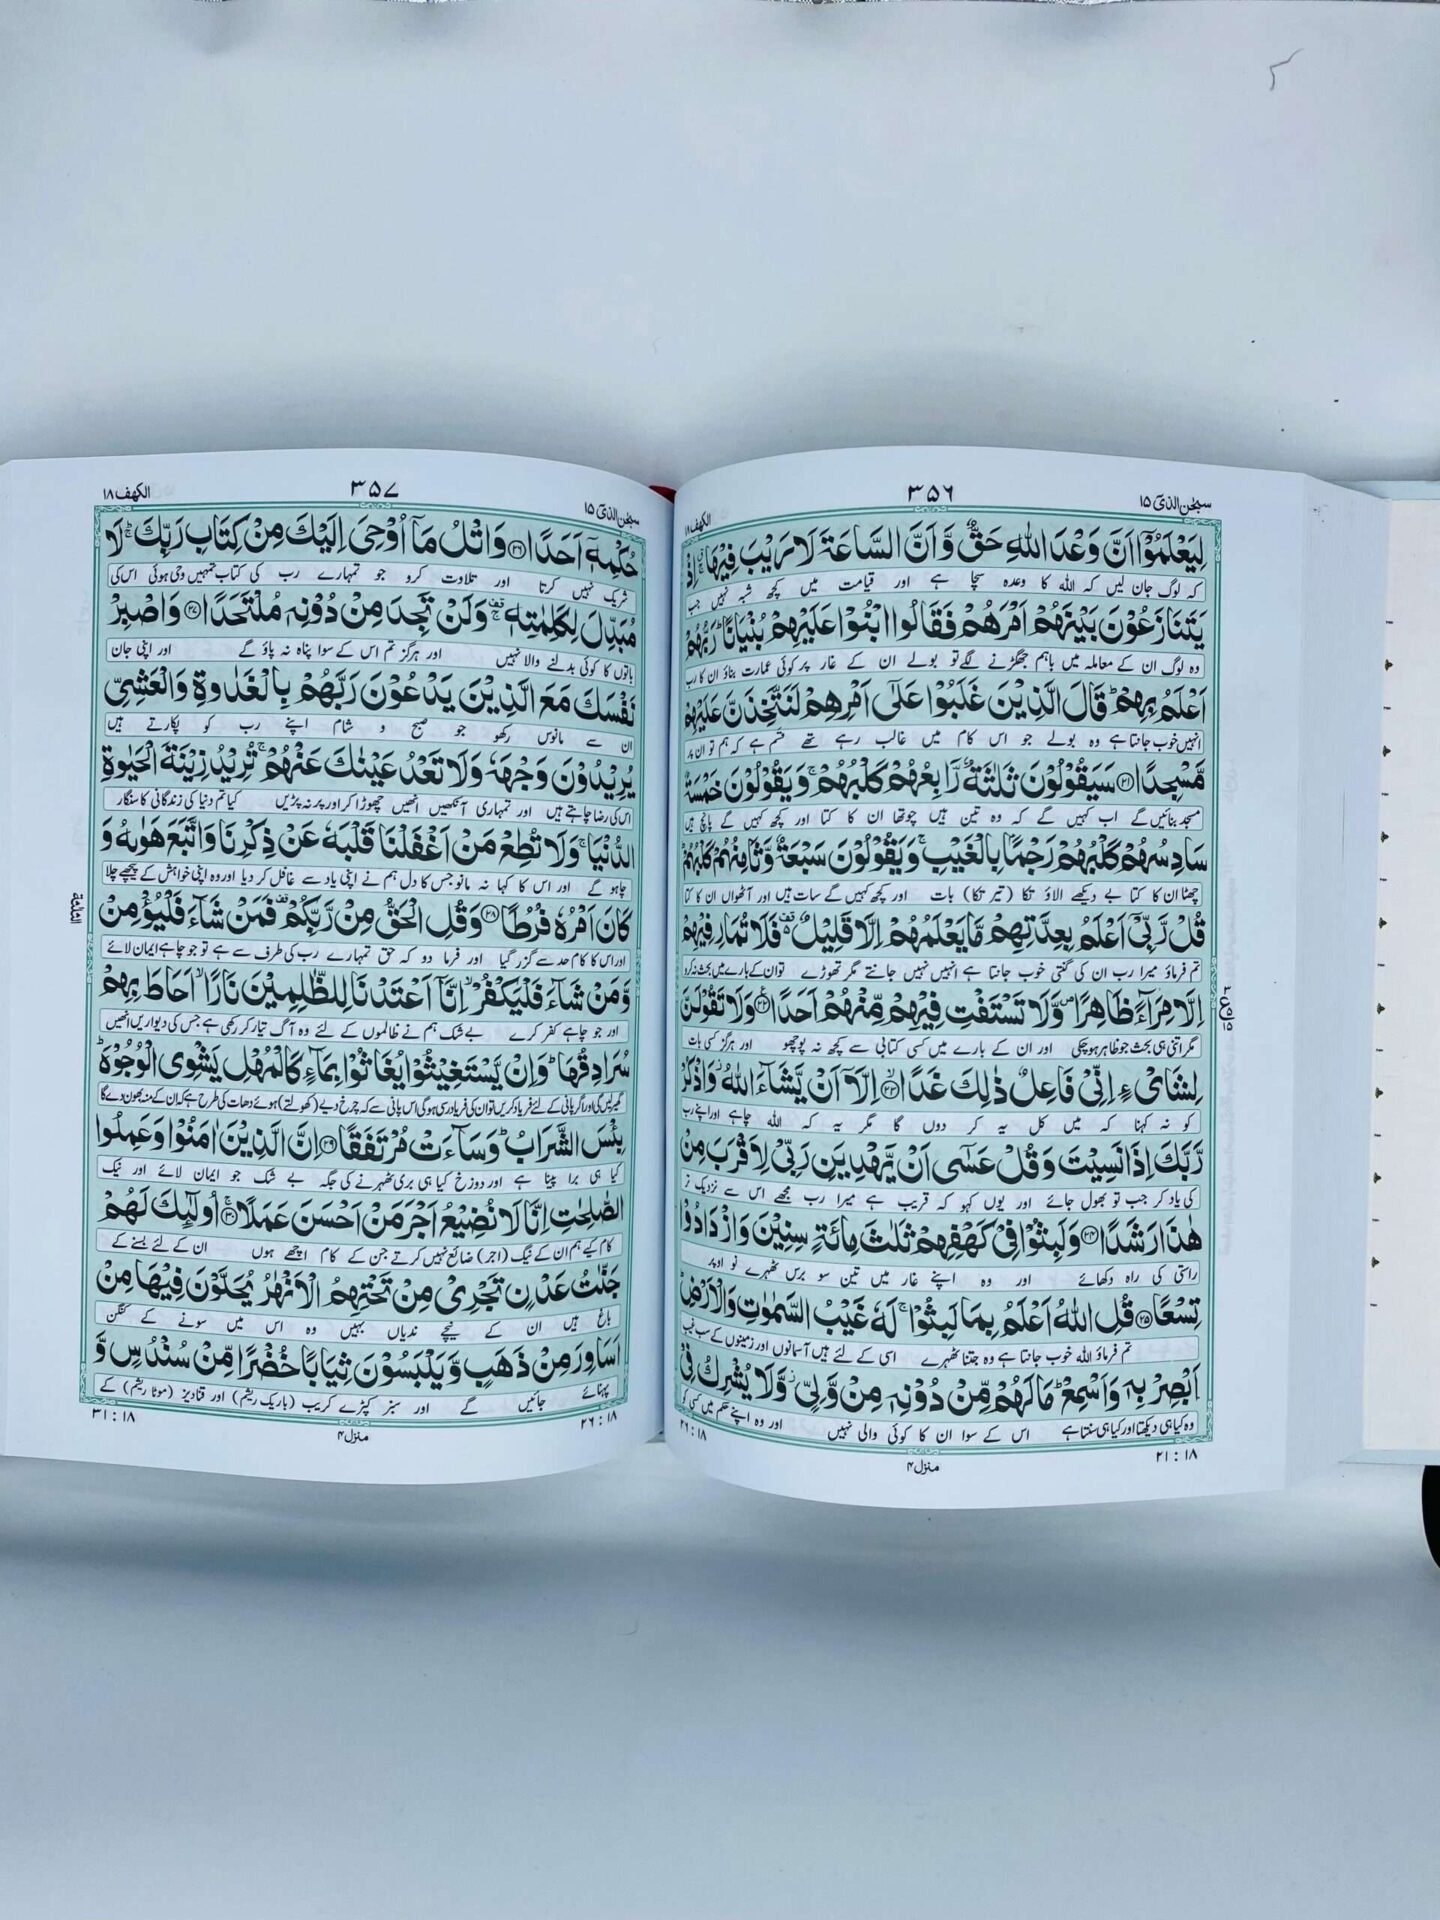 سبحن الذی ١٥
٣٥٦
الکهف ١٨
لِيَعْلَمُوْۤا اَنَّ وَعْدَ اللّٰهِ حَقٌّ وَّ اَنَّ السَّاعَةَ لَا رَيْبَ فِيْهَا ۚ اِذْ
کہ لوگ جان لیں کہ اللہ کا وعدہ سچا ہے اور قیامت میں کچھ شبہ نہیں جب
يَتَنَازَعُوْنَ بَيْنَهُمْ اَمْرَهُمْ فَقَالُوا ابْنُوْا عَلَيْهِمْ بُنْيَانًا ؕ رَبُّهُمْ
وہ لوگ ان کے معاملہ میں باہم جھگڑنے لگے تو بولے ان کے غار پر کوئی عمارت بناؤ ان کا رب
اَعْلَمُ بِهِمْ ؕ قَالَ الَّذِيْنَ غَلَبُوْا عَلٰۤى اَمْرِهِمْ لَنَتَّخِذَنَّ عَلَيْهِمْ
انہیں خوب جانتا ہے وہ بولے جو اس کام میں غالب رہے تھے قسم ہے کہ ہم تو ان پر
مَّسْجِدًا ﴿٢١﴾ سَيَقُوْلُوْنَ ثَلٰثَةٌ رَّابِعُهُمْ كَلْبُهُمْ ۚ وَ يَقُوْلُوْنَ خَمْسَةٌ
مسجد بنائیں گے اب کہیں گے کہ وہ تین ہیں چوتھا ان کا کتا اور کچھ کہیں گے پانچ ہیں
سَادِسُهُمْ كَلْبُهُمْ رَجْمًۢا بِالْغَيْبِ ۚ وَ يَقُوْلُوْنَ سَبْعَةٌ وَّ ثَامِنُهُمْ كَلْبُهُمْ
چھٹا ان کا کتا بے دیکھے الاؤ تکا (تیر تکا) بات اور کچھ کہیں گے سات ہیں اور آٹھواں ان کا کتا
قُلْ رَّبِّيْۤ اَعْلَمُ بِعِدَّتِهِمْ مَّا يَعْلَمُهُمْ اِلَّا قَلِيْلٌ ۫ فَلَا تُمَارِ فِيْهِمْ
تم فرماؤ میرا رب ان کی گنتی خوب جانتا ہے انہیں نہیں جانتے مگر تھوڑے تو ان کے بارے میں بحث نہ کرو
اِلَّا مِرَآءً ظَاهِرًا ۪ وَّ لَا تَسْتَفْتِ فِيْهِمْ مِّنْهُمْ اَحَدًا ﴿٢٢﴾ وَ لَا تَقُوْلَنَّ
مگر اتنی ہی بحث جو ظاہر ہو چکی اور ان کے بارے میں کسی کتابی سے کچھ نہ پوچھو اور ہرگز کسی بات
لِشَايْءٍ اِنِّيْ فَاعِلٌ ذٰلِكَ غَدًا ﴿٢٣﴾ اِلَّاۤ اَنْ يَّشَآءَ اللّٰهُ ۫ وَ اذْكُرْ
کو نہ کہنا کہ میں کل یہ کر دوں گا مگر یہ کہ اللہ چاہے اور اپنے رب
رَّبَّكَ اِذَا نَسِيْتَ وَ قُلْ عَسٰۤى اَنْ يَّهْدِيَنِ رَبِّيْ لِاَقْرَبَ مِنْ
کی یاد کر جب تو بھول جائے اور یوں کہو کہ قریب ہے میرا رب مجھے اس سے نزدیک تر
هٰذَا رَشَدًا ﴿٢٤﴾ وَ لَبِثُوْا فِيْ كَهْفِهِمْ ثَلٰثَ مِائَةٍ سِنِيْنَ وَ ازْدَادُوْا
راستی کی راہ دکھائے اور وہ اپنے غار میں تین سو برس ٹھہرے نو اوپر
تِسْعًا ﴿٢٥﴾ قُلِ اللّٰهُ اَعْلَمُ بِمَا لَبِثُوْا ۚ لَهٗ غَيْبُ السَّمٰوٰتِ وَ الْاَرْضِ ؕ
تم فرماؤ اللہ خوب جانتا ہے وہ جتنا ٹھہرے اسی کے لئے ہیں آسمانوں اور زمینوں کے سب غیب
اَبْصِرْ بِهٖ وَ اَسْمِعْ ؕ مَا لَهُمْ مِّنْ دُوْنِهٖ مِنْ وَّلِيٍّ ۫ وَّ لَا يُشْرِكُ فِيْ
وہ کیا ہی دیکھتا اور کیا ہی سنتا ہے اس کے سوا ان کا کوئی والی نہیں اور وہ اپنے حکم میں کسی کو
٢١ : ١٨
منزل ٤
٢٦ : ١٨
سبحن الذی ١٥
٣٥٧
الکهف ١٨
حُكْمِهٖۤ اَحَدًا ﴿٢٦﴾ وَ اتْلُ مَاۤ اُوْحِيَ اِلَيْكَ مِنْ كِتَابِ رَبِّكَ ۚ لَا
شریک نہیں کرتا اور تلاوت کرو جو تمہارے رب کی کتاب تمہیں وحی ہوئی اس کی
مُبَدِّلَ لِكَلِمٰتِهٖ ۫ وَ لَنْ تَجِدَ مِنْ دُوْنِهٖ مُلْتَحَدًا ﴿٢٧﴾ وَ اصْبِرْ
باتوں کا کوئی بدلنے والا نہیں اور ہرگز تم اس کے سوا پناہ نہ پاؤ گے اور اپنی جان
نَفْسَكَ مَعَ الَّذِيْنَ يَدْعُوْنَ رَبَّهُمْ بِالْغَدٰوةِ وَ الْعَشِيِّ
ان سے مانوس رکھو جو صبح و شام اپنے رب کو پکارتے ہیں
يُرِيْدُوْنَ وَجْهَهٗ وَ لَا تَعْدُ عَيْنٰكَ عَنْهُمْ ۚ تُرِيْدُ زِيْنَةَ الْحَيٰوةِ
اس کی رضا چاہتے ہیں اور تمہاری آنکھیں انھیں چھوڑ کر اور پر نہ پڑیں کیا تم دنیا کی زندگانی کا سنگار
الدُّنْيَا ۚ وَ لَا تُطِعْ مَنْ اَغْفَلْنَا قَلْبَهٗ عَنْ ذِكْرِنَا وَ اتَّبَعَ هَوٰىهُ وَ
چاہو گے اور اس کا کہا نہ مانو جس کا دل ہم نے اپنی یاد سے غافل کر دیا اور وہ اپنی خواہش کے پیچھے چلا
كَانَ اَمْرُهٗ فُرُطًا ﴿٢٨﴾ وَ قُلِ الْحَقُّ مِنْ رَّبِّكُمْ ۫ فَمَنْ شَآءَ فَلْيُؤْمِنْ
اور اس کا کام حد سے گزر گیا اور فرما دو کہ حق تمہارے رب کی طرف سے ہے تو جو چاہے ایمان لائے
وَّ مَنْ شَآءَ فَلْيَكْفُرْ ۙ اِنَّاۤ اَعْتَدْنَا لِلظّٰلِمِيْنَ نَارًا ۙ اَحَاطَ بِهِمْ
اور جو چاہے کفر کرے بے شک ہم نے ظالموں کے لئے وہ آگ تیار کر رکھی ہے جس کی دیواریں انھیں
سُرَادِقُهَا ؕ وَ اِنْ يَّسْتَغِيْثُوْا يُغَاثُوْا بِمَآءٍ كَالْمُهْلِ يَشْوِي الْوُجُوْهَ ؕ
گھیر لیں گی اور اگر پانی کے لئے فریاد کریں تو ان کی فریاد رسی ہوگی اس پانی سے کہ چرخ دیے (کھولتے) ہوئے دھات کی طرح ہے کہ ان کے منہ بھون دے گا
بِئْسَ الشَّرَابُ ؕ وَ سَآءَتْ مُرْتَفَقًا ﴿٢٩﴾ اِنَّ الَّذِيْنَ اٰمَنُوْا وَ عَمِلُوا
کیا ہی برا پینا ہے اور دوزخ کیا ہی بری ٹھہرنے کی جگہ بے شک جو ایمان لائے اور نیک
الصّٰلِحٰتِ اِنَّا لَا نُضِيْعُ اَجْرَ مَنْ اَحْسَنَ عَمَلًا ﴿٣٠﴾ اُولٰٓئِكَ لَهُمْ
کام کیے ہم ان کے نیک (اجر) ضائع نہیں کرتے جن کے کام اچھے ہوں ان کے لئے بسنے کے
جَنّٰتُ عَدْنٍ تَجْرِيْ مِنْ تَحْتِهِمُ الْاَنْهٰرُ يُحَلَّوْنَ فِيْهَا مِنْ
باغ ہیں ان کے نیچے ندیاں بہیں وہ اس میں سونے کے کنگن
اَسَاوِرَ مِنْ ذَهَبٍ وَّ يَلْبَسُوْنَ ثِيَابًا خُضْرًا مِّنْ سُنْدُسٍ وَّ
پہنائے جائیں گے اور سبز کپڑے کریب (باریک ریشم) اور قنادیز (موٹا ریشم) کے
٢٦ : ١٨
منزل ٤
٣١ : ١٨